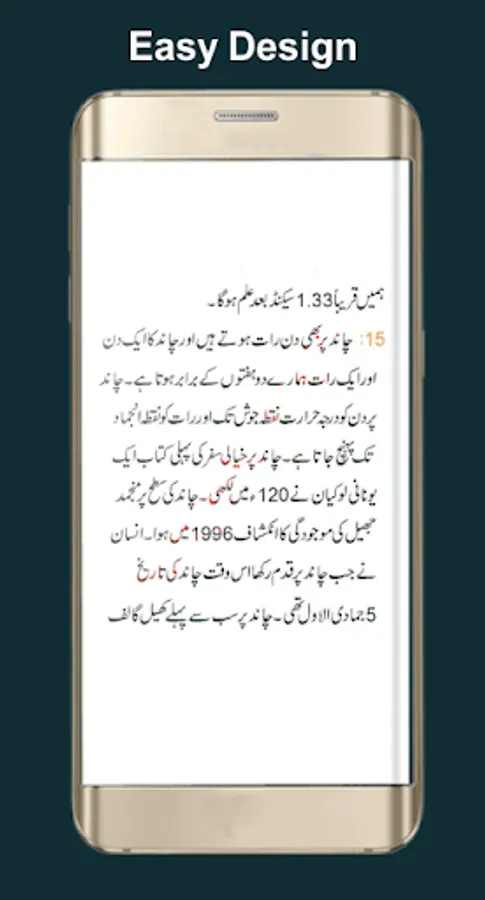 Easy Design
ہمیں قریباً 1.33 سیکنڈ بعد علم ہوگا۔
15: چاند پر بھی دن رات ہوتے ہیں اور چاند کا ایک دن
اور ایک رات ہمارے دو ہفتوں کے برابر ہوتا ہے۔ چاند
پر دن کو درجہ حرارت نقطہ جوش تک اور رات کو نقطہ انجماد
تک پہنچ جاتا ہے۔ چاند پر خیالی سفر کی پہلی کتاب ایک
یونانی لوکیان نے 120ء میں لکھی۔ چاند کی سطح پر منجمد
جھیل کی موجودگی کا انکشاف 1996 میں ہوا۔ انسان
نے جب چاند پر قدم رکھا اس وقت چاند کی تاریخ
5 جمادی الاول تھی۔ چاند پر سب سے پہلے کھیل گالف